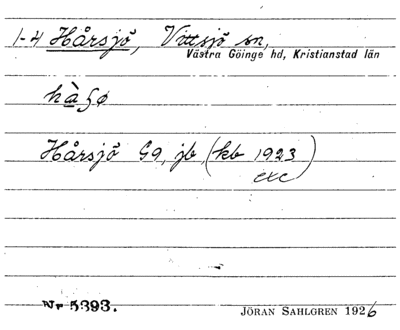 1-4 Hårsjö, Vittsjö sn,
Västra Göinge hd, Kristianstad län
hà̱ʂø
Hårsjö G9, jb, (kb 1923)
exc
Nr 5393.
JÖRAN SAHLGREN 1926